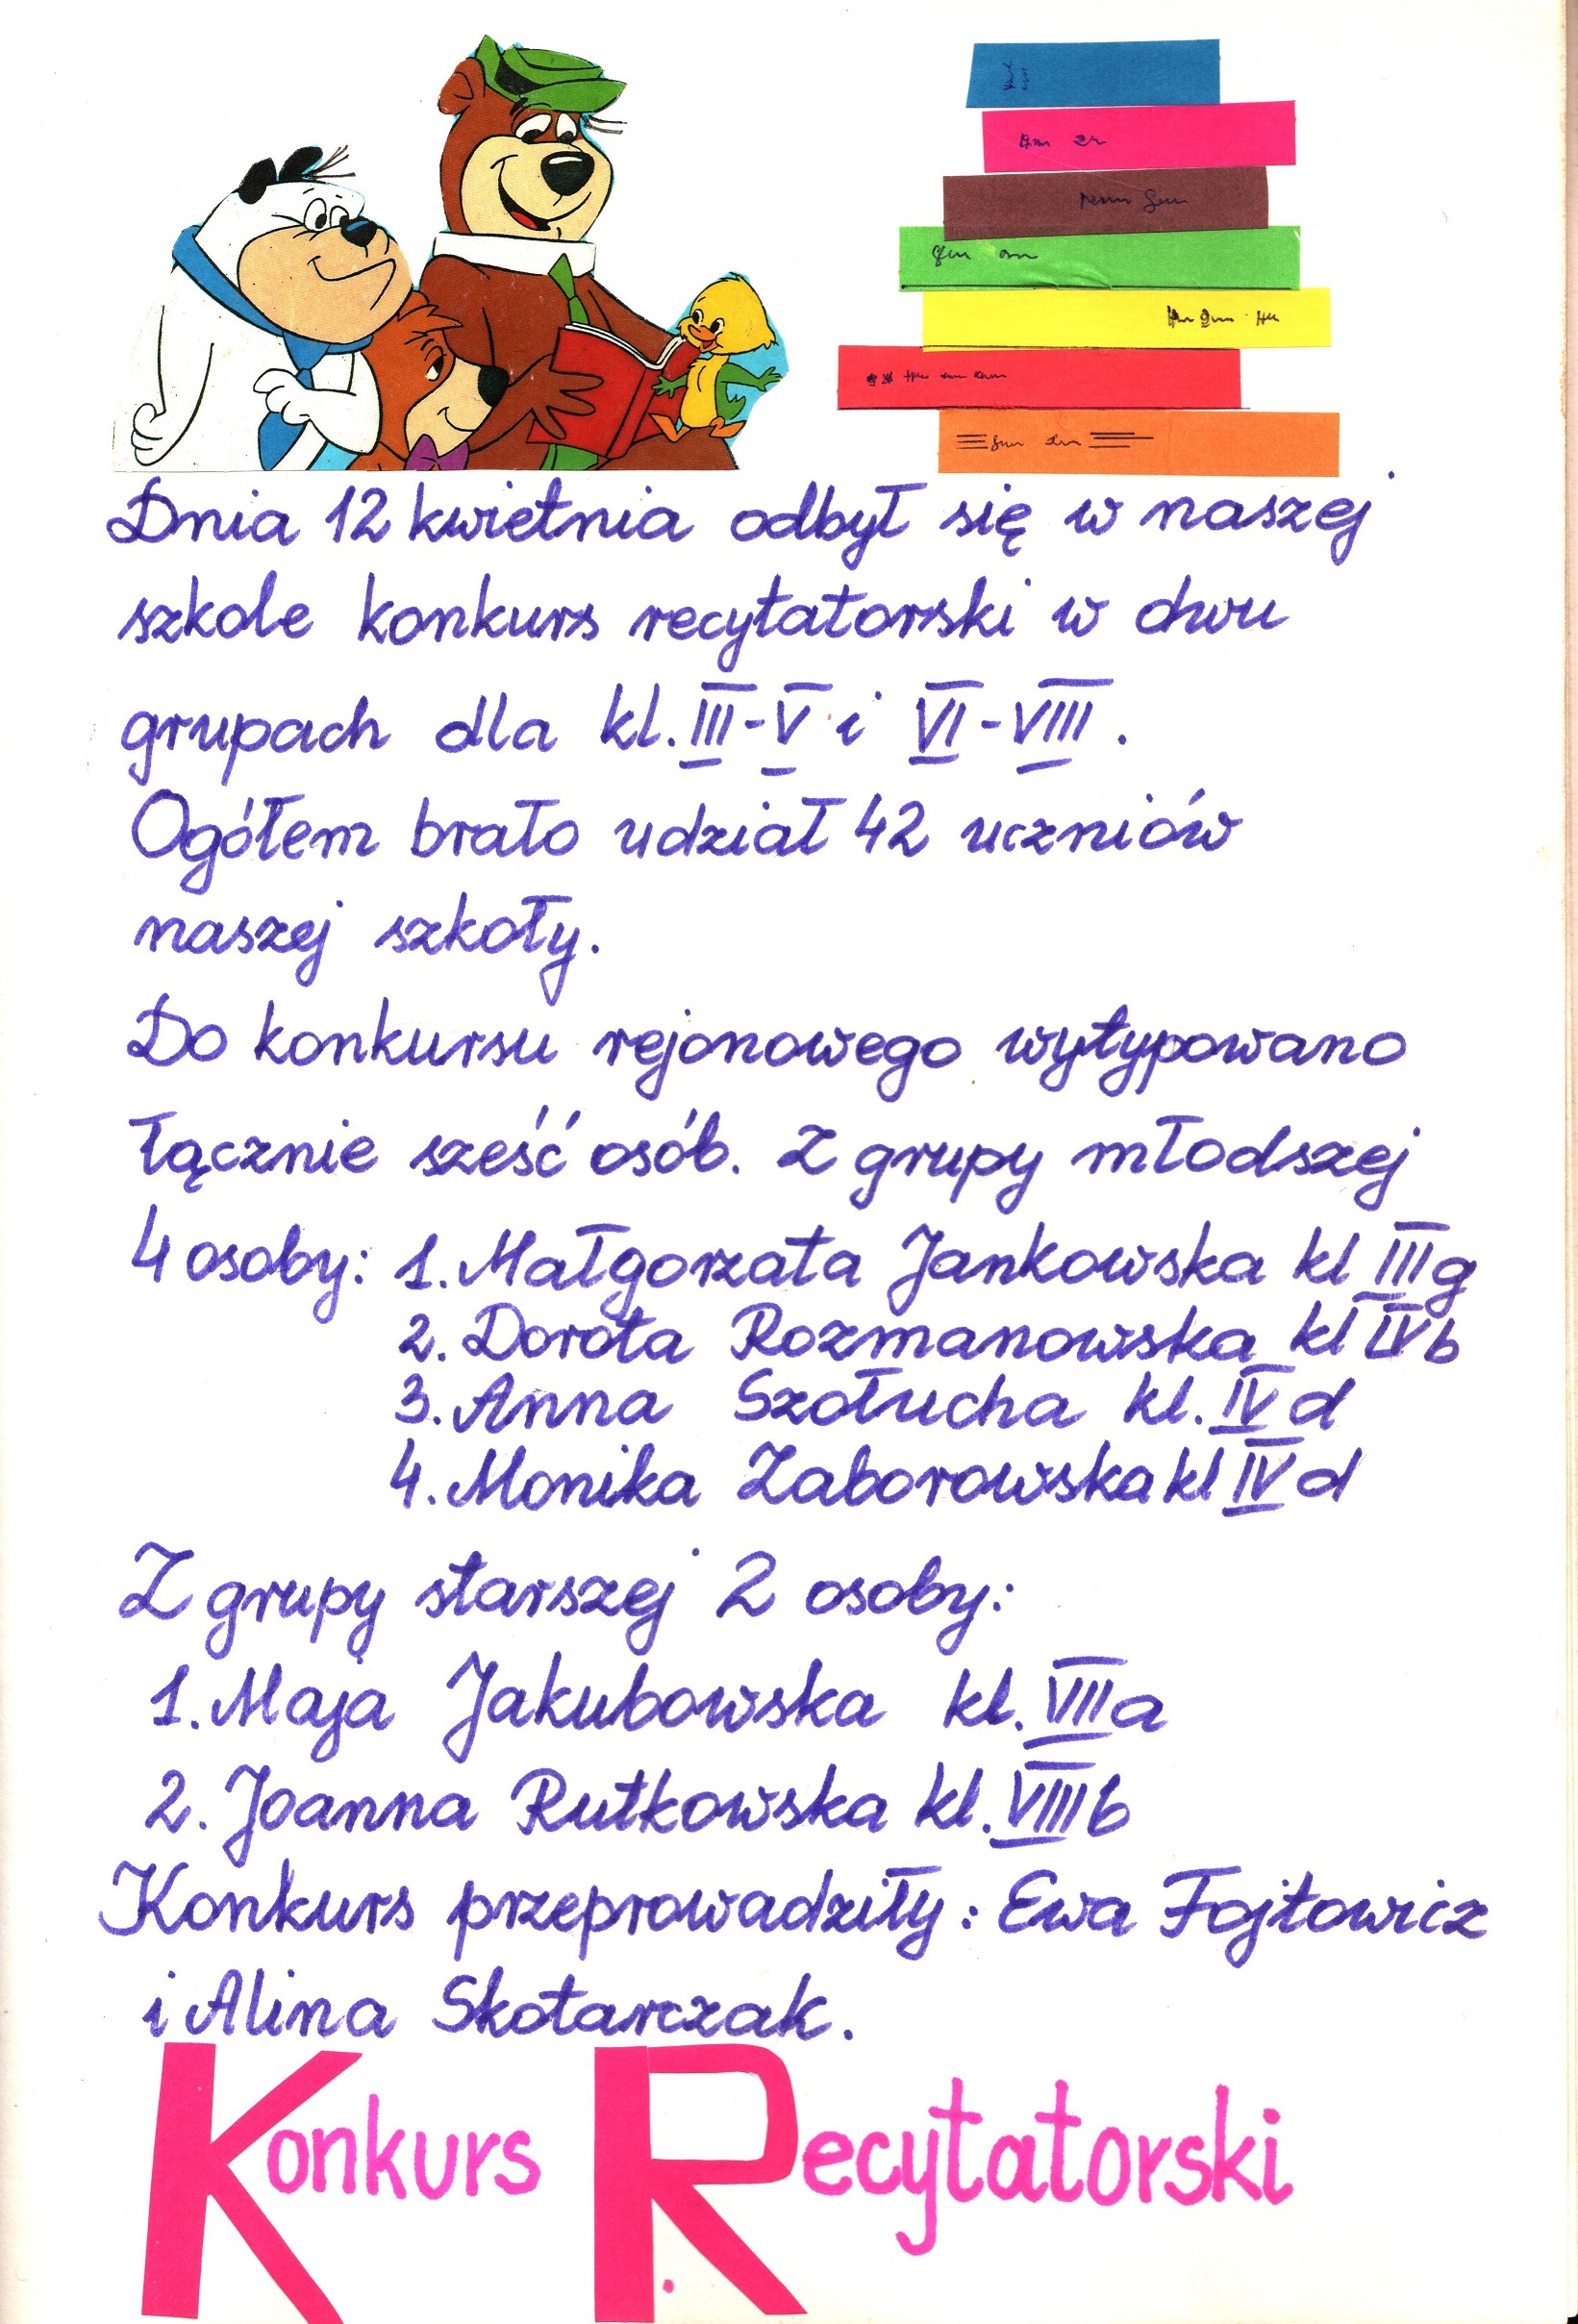 Dnia 12 kwietnia odbył się w naszej
szkole konkurs recytatorski w dwu
grupach dla kl. III-V i VI-VIII.
Ogółem brało udział 42 uczniów
naszej szkoły.
Do konkursu rejonowego wytypowano
łącznie sześć osób. Z grupy młodszej
4 osoby: 1. Małgorzata Jankowska kl IIIg
2. Dorota Rozmanowska kl IVb
3. Anna Szołucha kl. IV d
4. Monika Zaborowska kl IV d
Z grupy starszej 2 osoby:
1. Maja Jakubowska kl. VIIIa
2. Joanna Rutkowska kl. VIIIb
Konkurs przeprowadziły: Ewa Fojtowicz
i Alina Skotarczak.
Konkurs Recytatorski